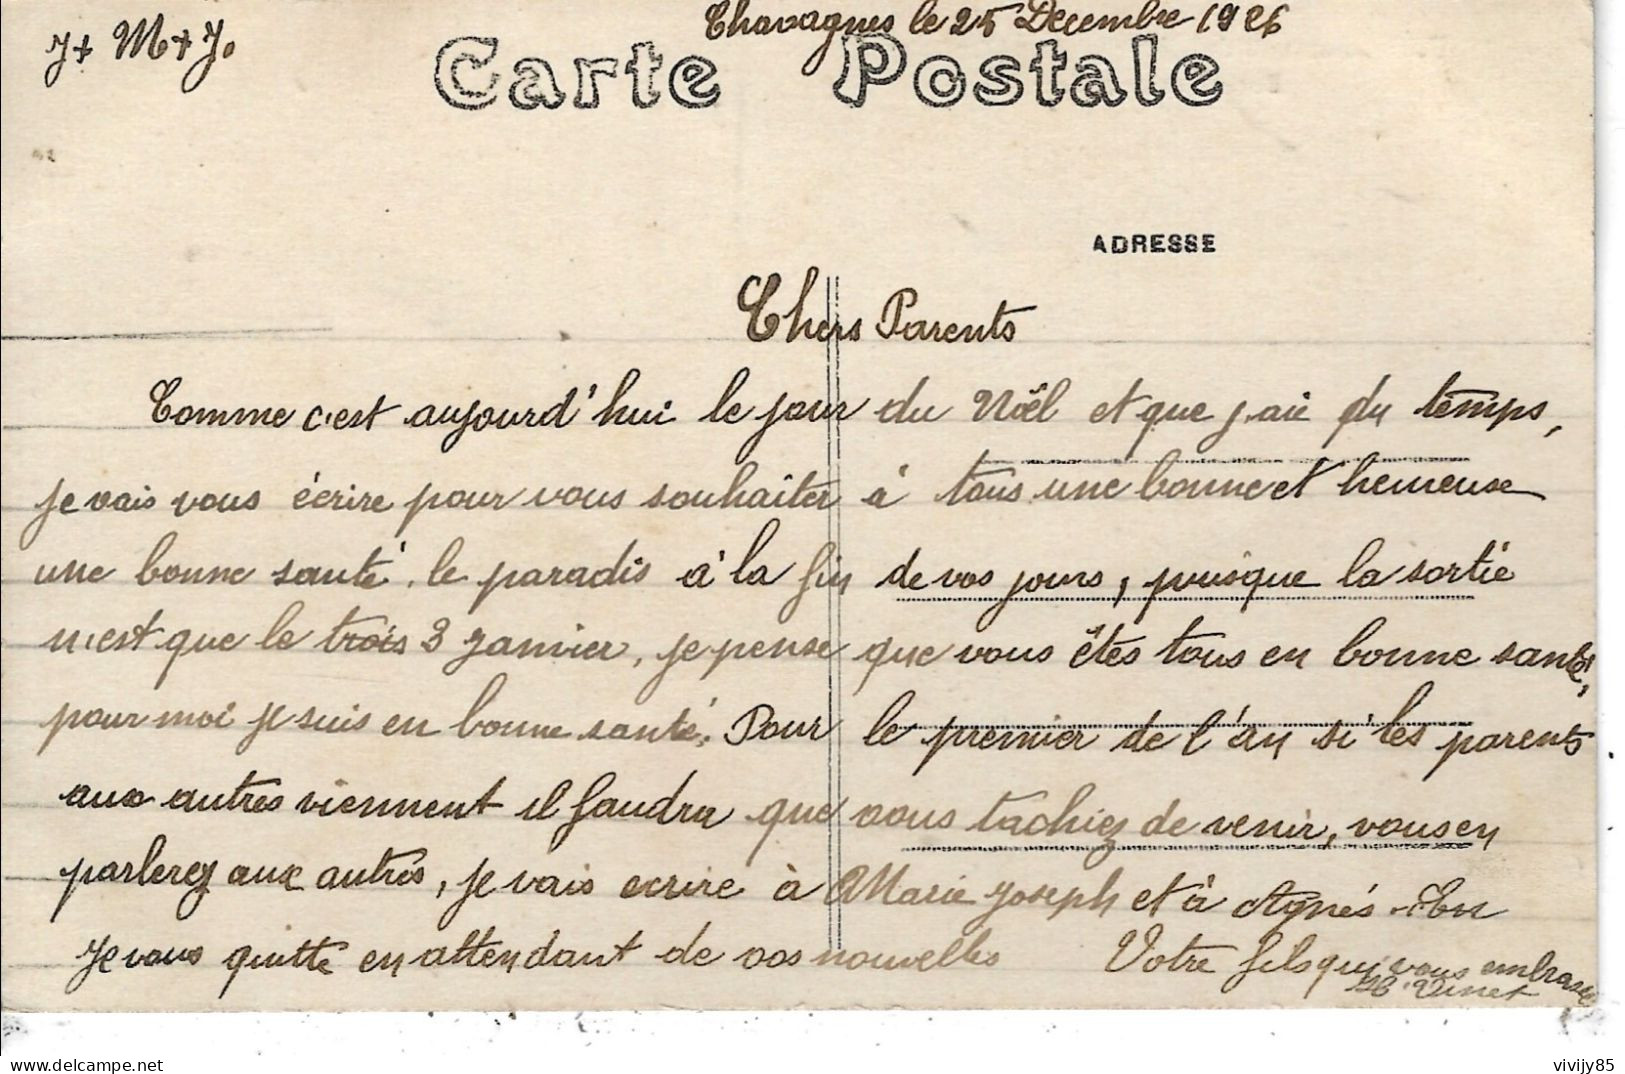 J + M + J.
Chavagnes le 25 Decembre 1926
Carte Postale
ADRESSE
Chers Parents
Comme c'est aujourd'hui le jour du Noël et que j'aie du temps,
je vais vous écrire pour vous souhaiter à tous une bonne et heureuse
une bonne santé, le paradis à la fin de vos jours, puisque la sortie
n'est que le trois 3 Janvier, je pense que vous êtes tous en bonne santé,
pour moi je suis en bonne santé. Pour le premier de l'an si les parents
aux autres viennent il faudra que vous tachiez de venir, vous en
parlerez aux autres, je vais ecrire à Marie Joseph et à Agnés. En
Je vous quitte en attendant de vos nouvelles Votre fils qui vous embrasse
Vinet
vivijy85
www.delcampe.net